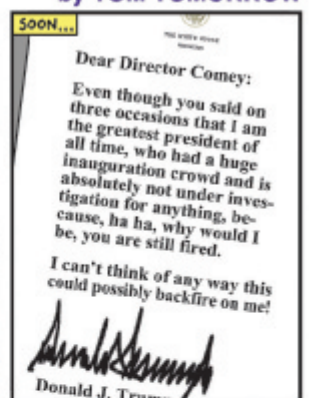 by TOM TOMORROW
SOON...
THE WHITE HOUSE
Dear Director Comey:
Even though you said on
three occasions that I am
the greatest president of
all time, who had a huge
inauguration crowd and is
absolutely not under inves-
tigation for anything, be-
cause, ha ha, why would I
be, you are still fired.
I can't think of any way this
could possibly backfire on me!
Donald J. Trump